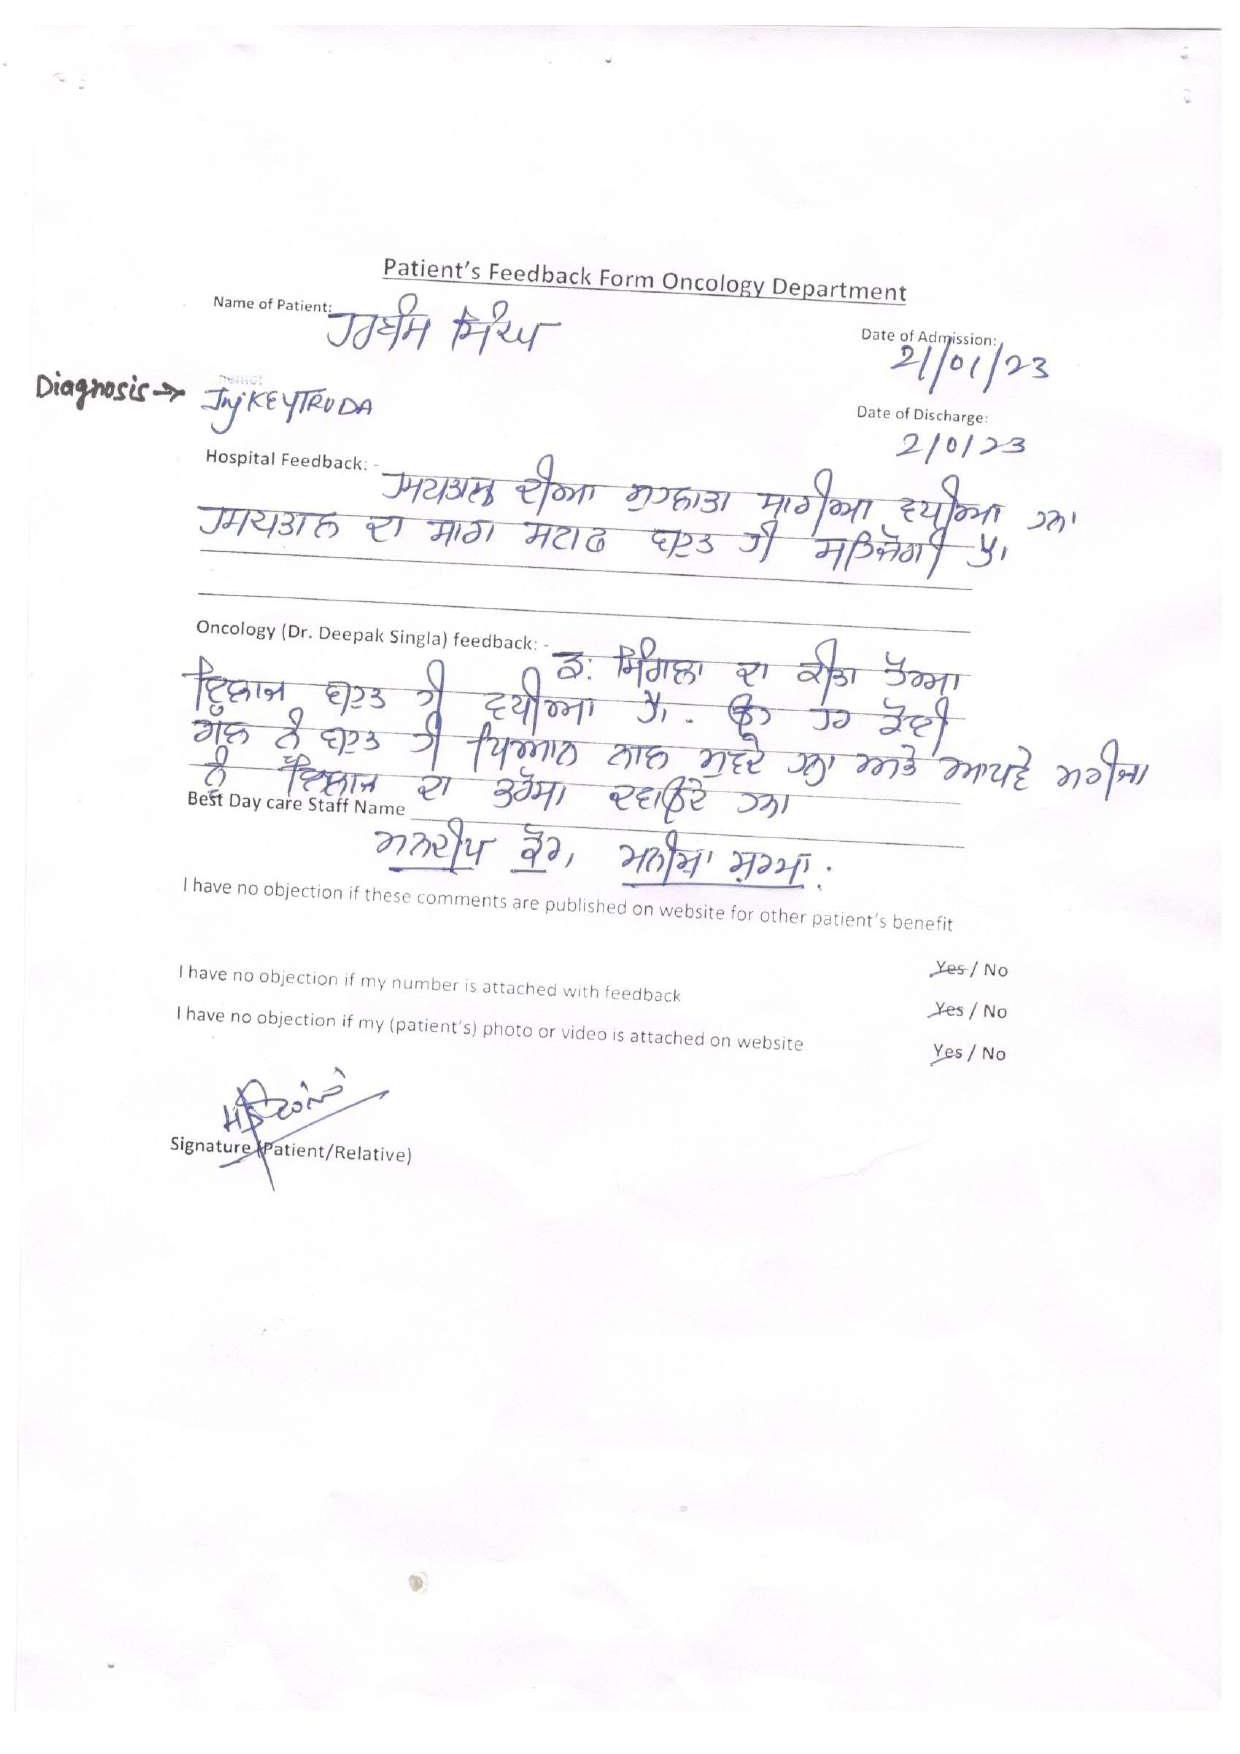 Patient's Feedback Form Oncology Department
Name of Patient: ਹਰਬੰਸ ਸਿੰਘ
Date of Admission:
21/01/23
Diagnosis → Inj KEYTRUDA
Date of Discharge:
2/0/23
Hospital Feedback: - ਹਸਪਤਾਲ ਦੀਆ ਸੁਹਲਤਾ ਸਾਰੀਆ ਵਧੀਆ ਹਨ।
ਹਸਪਤਾਲ ਦਾ ਸਾਰਾ ਸਟਾਫ ਬਹੁਤ ਹੀ ਸਹਿਜੋਗੀ ਹੈ।
Oncology (Dr. Deepak Singla) feedback: - ਡਾ: ਸਿੰਗਲਾ ਦਾ ਕੀਤਾ ਹੋਇਆ
ਇਲਾਜ ਬਹੁਤ ਹੀ ਵਧੀਆ ਹੈ। ਉਹ ਹਰ ਕੋਈ
ਗੱਲ ਨੂੰ ਬਹੁਤ ਹੀ ਧਿਆਨ ਨਾਲ ਸੁਣਦੇ ਹਨ ਅਤੇ ਆਪਣੇ ਮਰੀਜਾ
ਨੂੰ ਇਲਾਜ ਦਾ ਭਰੋਸਾ ਦਵਾਉਂਦੇ ਹਨ।
Best Day care Staff Name
ਮਨਦੀਪ ਕੌਰ, ਮਨੀਸ਼ਾ ਸ਼ਰਮਾ.
I have no objection if these comments are published on website for other patient's benefit
Yes / No
I have no objection if my number is attached with feedback
Yes / No
I have no objection if my (patient's) photo or video is attached on website
Yes / No
Signature (Patient/Relative)